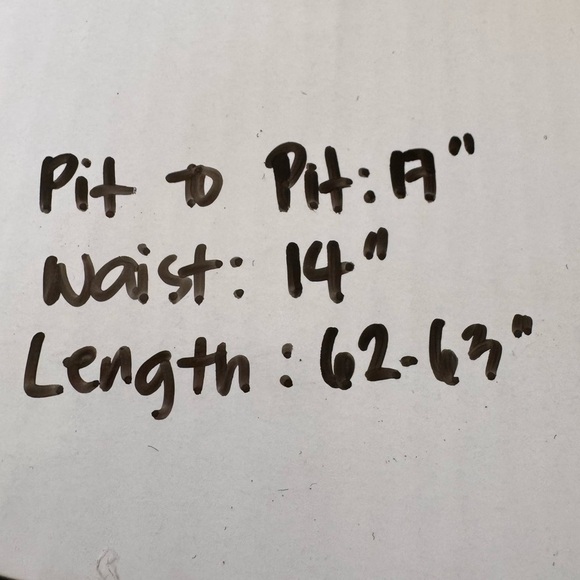 Pit to Pit: 17"
Waist: 14"
Length: 62-63"